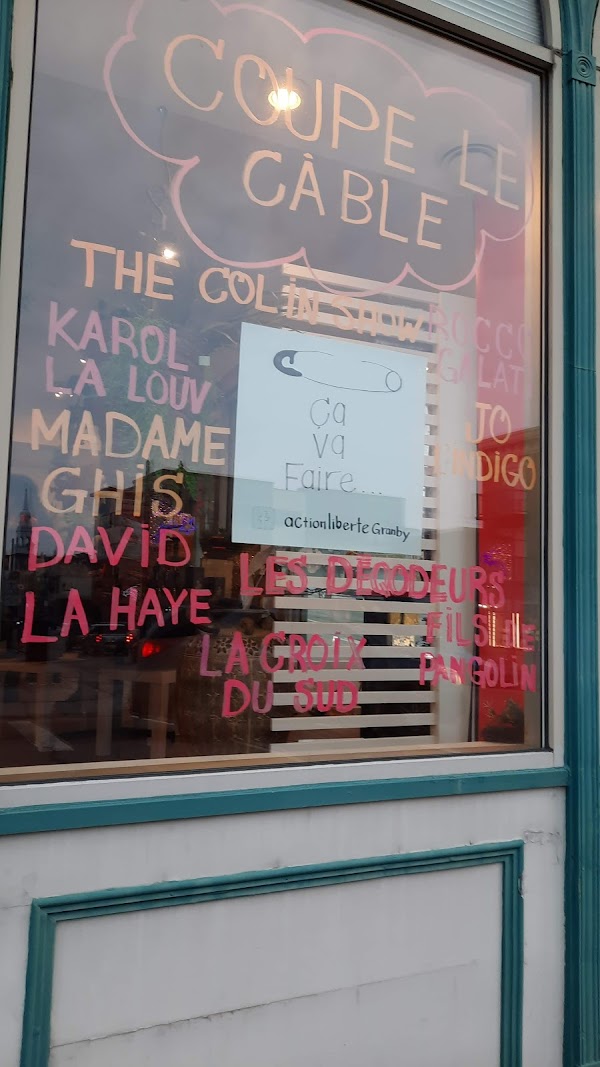 COUPE LE
CÂBLE
THE COLIN SHOW
KAROL
LA LOUV
ROCCO
GALAT
MADAME
GHIS
JO
L'INDIGO
Ça
va
Faire...
actionliberte Granby
DAVID
LA HAYE
LES DÉCODEURS
LA CROIX
DU SUD
FILS
PANGOLIN